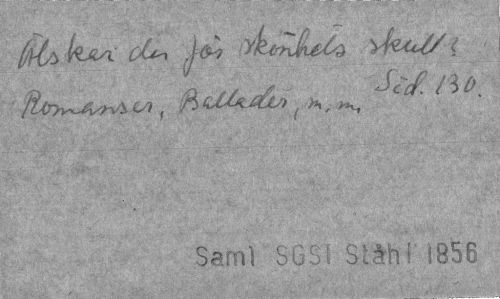 Älskar du för skönhets skull?
Sid. 130.
Romanser, Ballader, m.m.
Saml SGSI Ståhl 1856